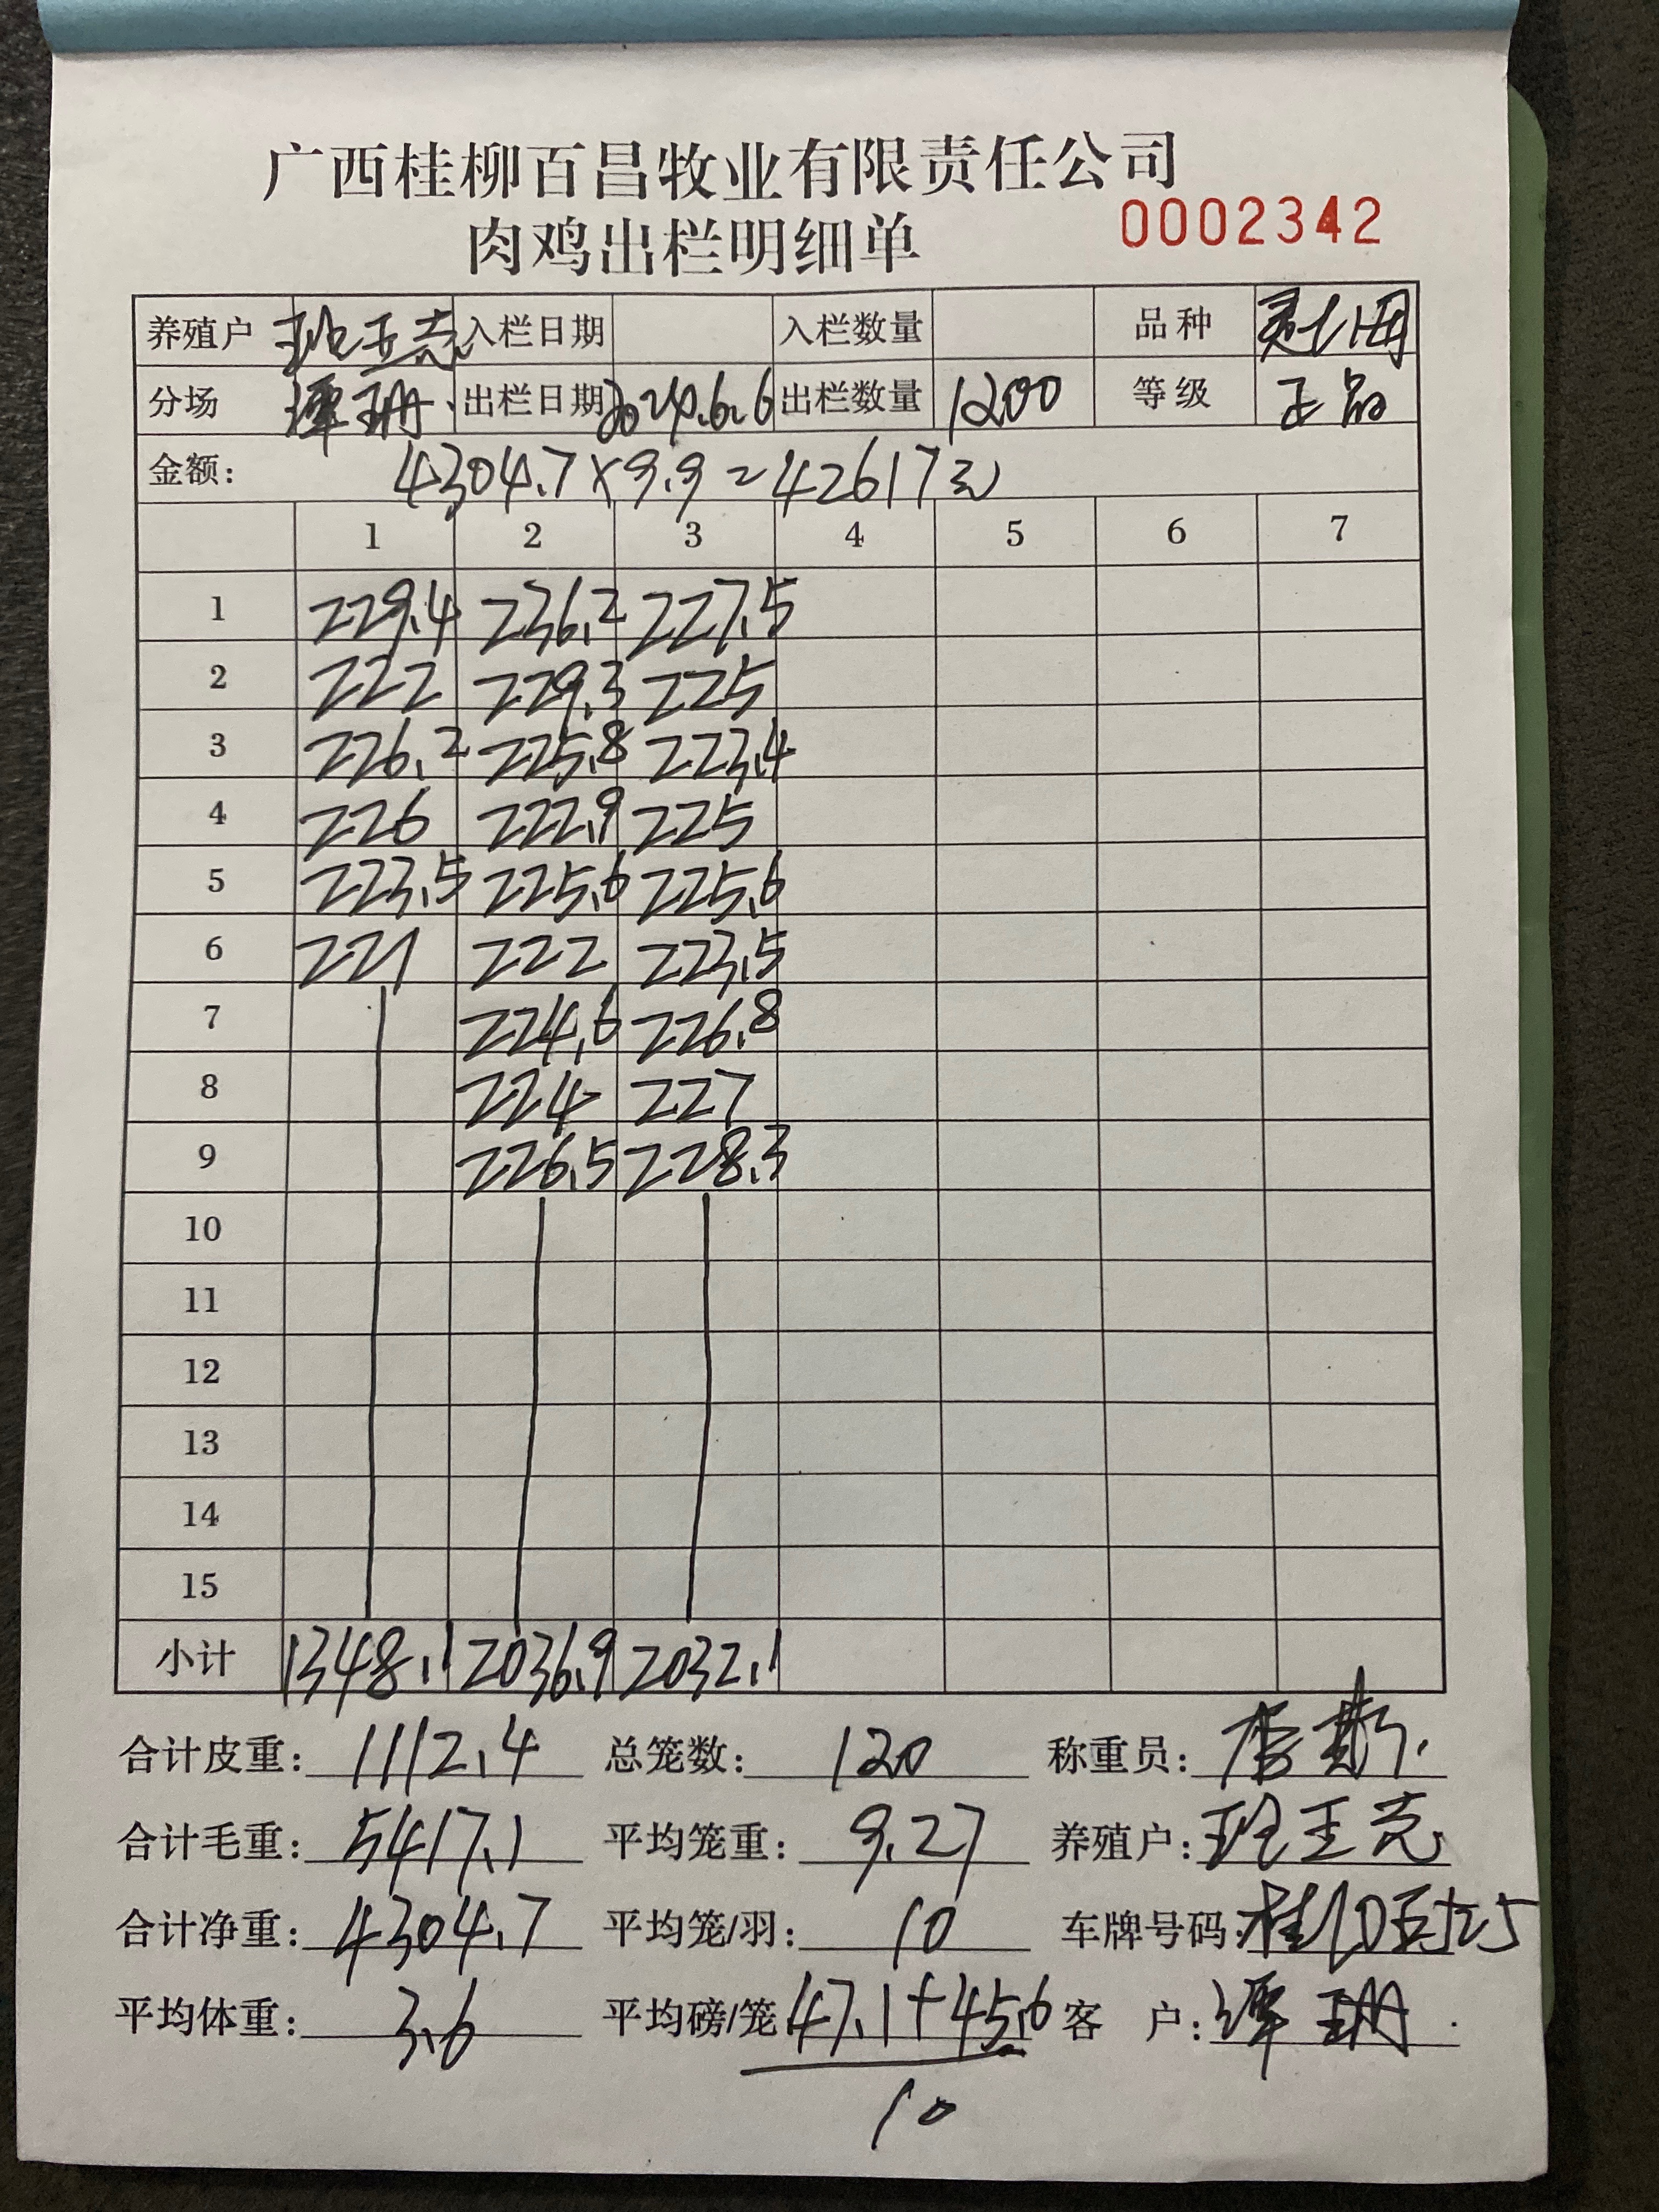 广西桂柳百昌牧业有限责任公司
肉鸡出栏明细单 0002342
养殖户 入栏日期 入栏数量 品种
分场 谭珊 出栏日期 2024.6.6 出栏数量 1200 等级 正品
金额: 4304.7×9.9=42617元
1 2 3 4 5 6 7
1 229.4 236.2 227.5
2 222 229.3 225
3 226.2 225.8 223.4
4 226 222.9 225
5 223.5 225.6 225.6
6 221 222 223.5
7 224.6 226.8
8 224 227
9 226.5 228.3
10
11
12
13
14
15
小计 1348.1 2036.9 2032.1
合计皮重: 1112.4 总笼数: 120 称重员:
合计毛重: 5417.1 平均笼重: 9.27 养殖户:
合计净重: 4304.7 平均笼/羽: 10 车牌号码:
平均体重: 3.6 平均磅/笼 47.1+45.6 客 户: 谭珊
10